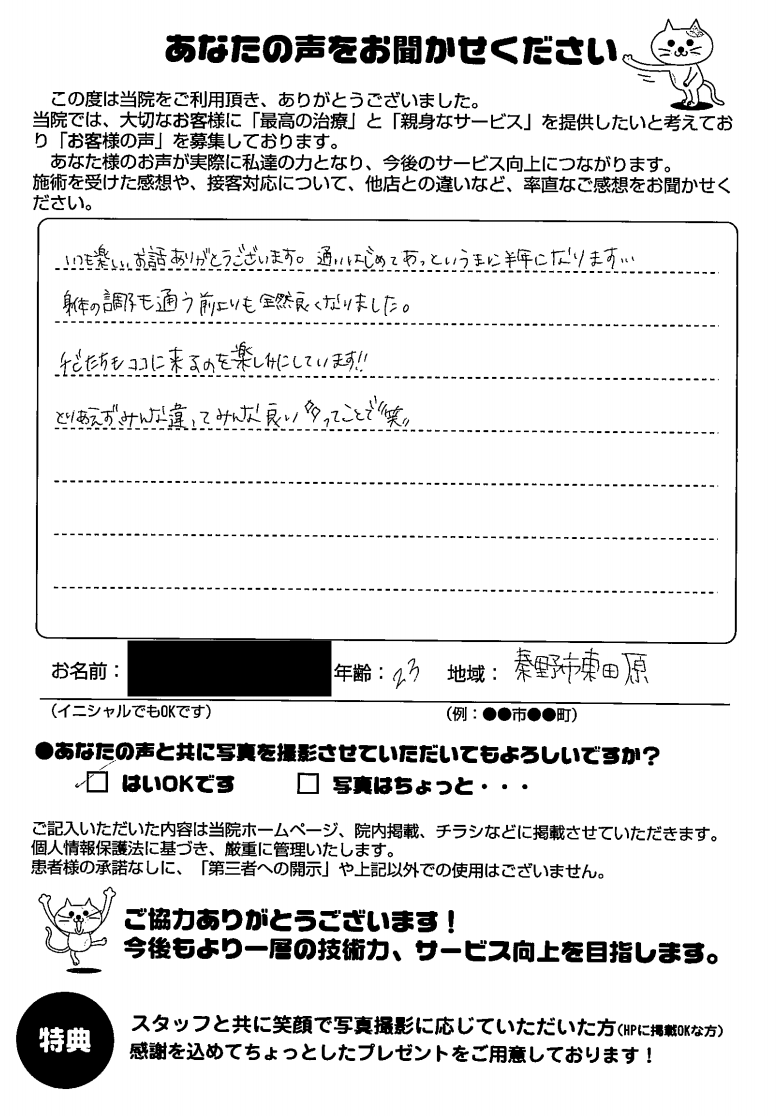 あなたの声をお聞かせください
この度は当院をご利用頂き、ありがとうございました。
当院では、大切なお客様に「最高の治療」と「親身なサービス」を提供したいと考えてお
り「お客様の声」を募集しております。
あなた様のお声が実際に私達の力となり、今後のサービス向上につながります。
施術を受けた感想や、接客対応について、他店との違いなど、率直なご感想をお聞かせく
ださい。
いつも楽しいお話ありがとうございます。通いはじめてあっというまに半年になります…
身体の調子も通う前よりも全然良くなりました。
子どたちもココに来るのを楽しみにしています!!
とりあえずみんな違ってみんな良い 
ってことで 笑
お名前： 年齢：23 地域： 秦野市東田原
(イニシャルでもOKです) (例：●●市●●町)
●あなたの声と共に写真を撮影させていただいてもよろしいですか？
✓□ はいOKです □ 写真はちょっと・・・
ご記入いただいた内容は当院ホームページ、院内掲載、チラシなどに掲載させていただきます。
個人情報保護法に基づき、厳重に管理いたします。
患者様の承諾なしに、「第三者への開示」や上記以外での使用はございません。
ご協力ありがとうございます！
今後もより一層の技術力、サービス向上を目指します。
特典
スタッフと共に笑顔で写真撮影に応じていただいた方(HPに掲載OKな方)
感謝を込めてちょっとしたプレゼントをご用意しております！